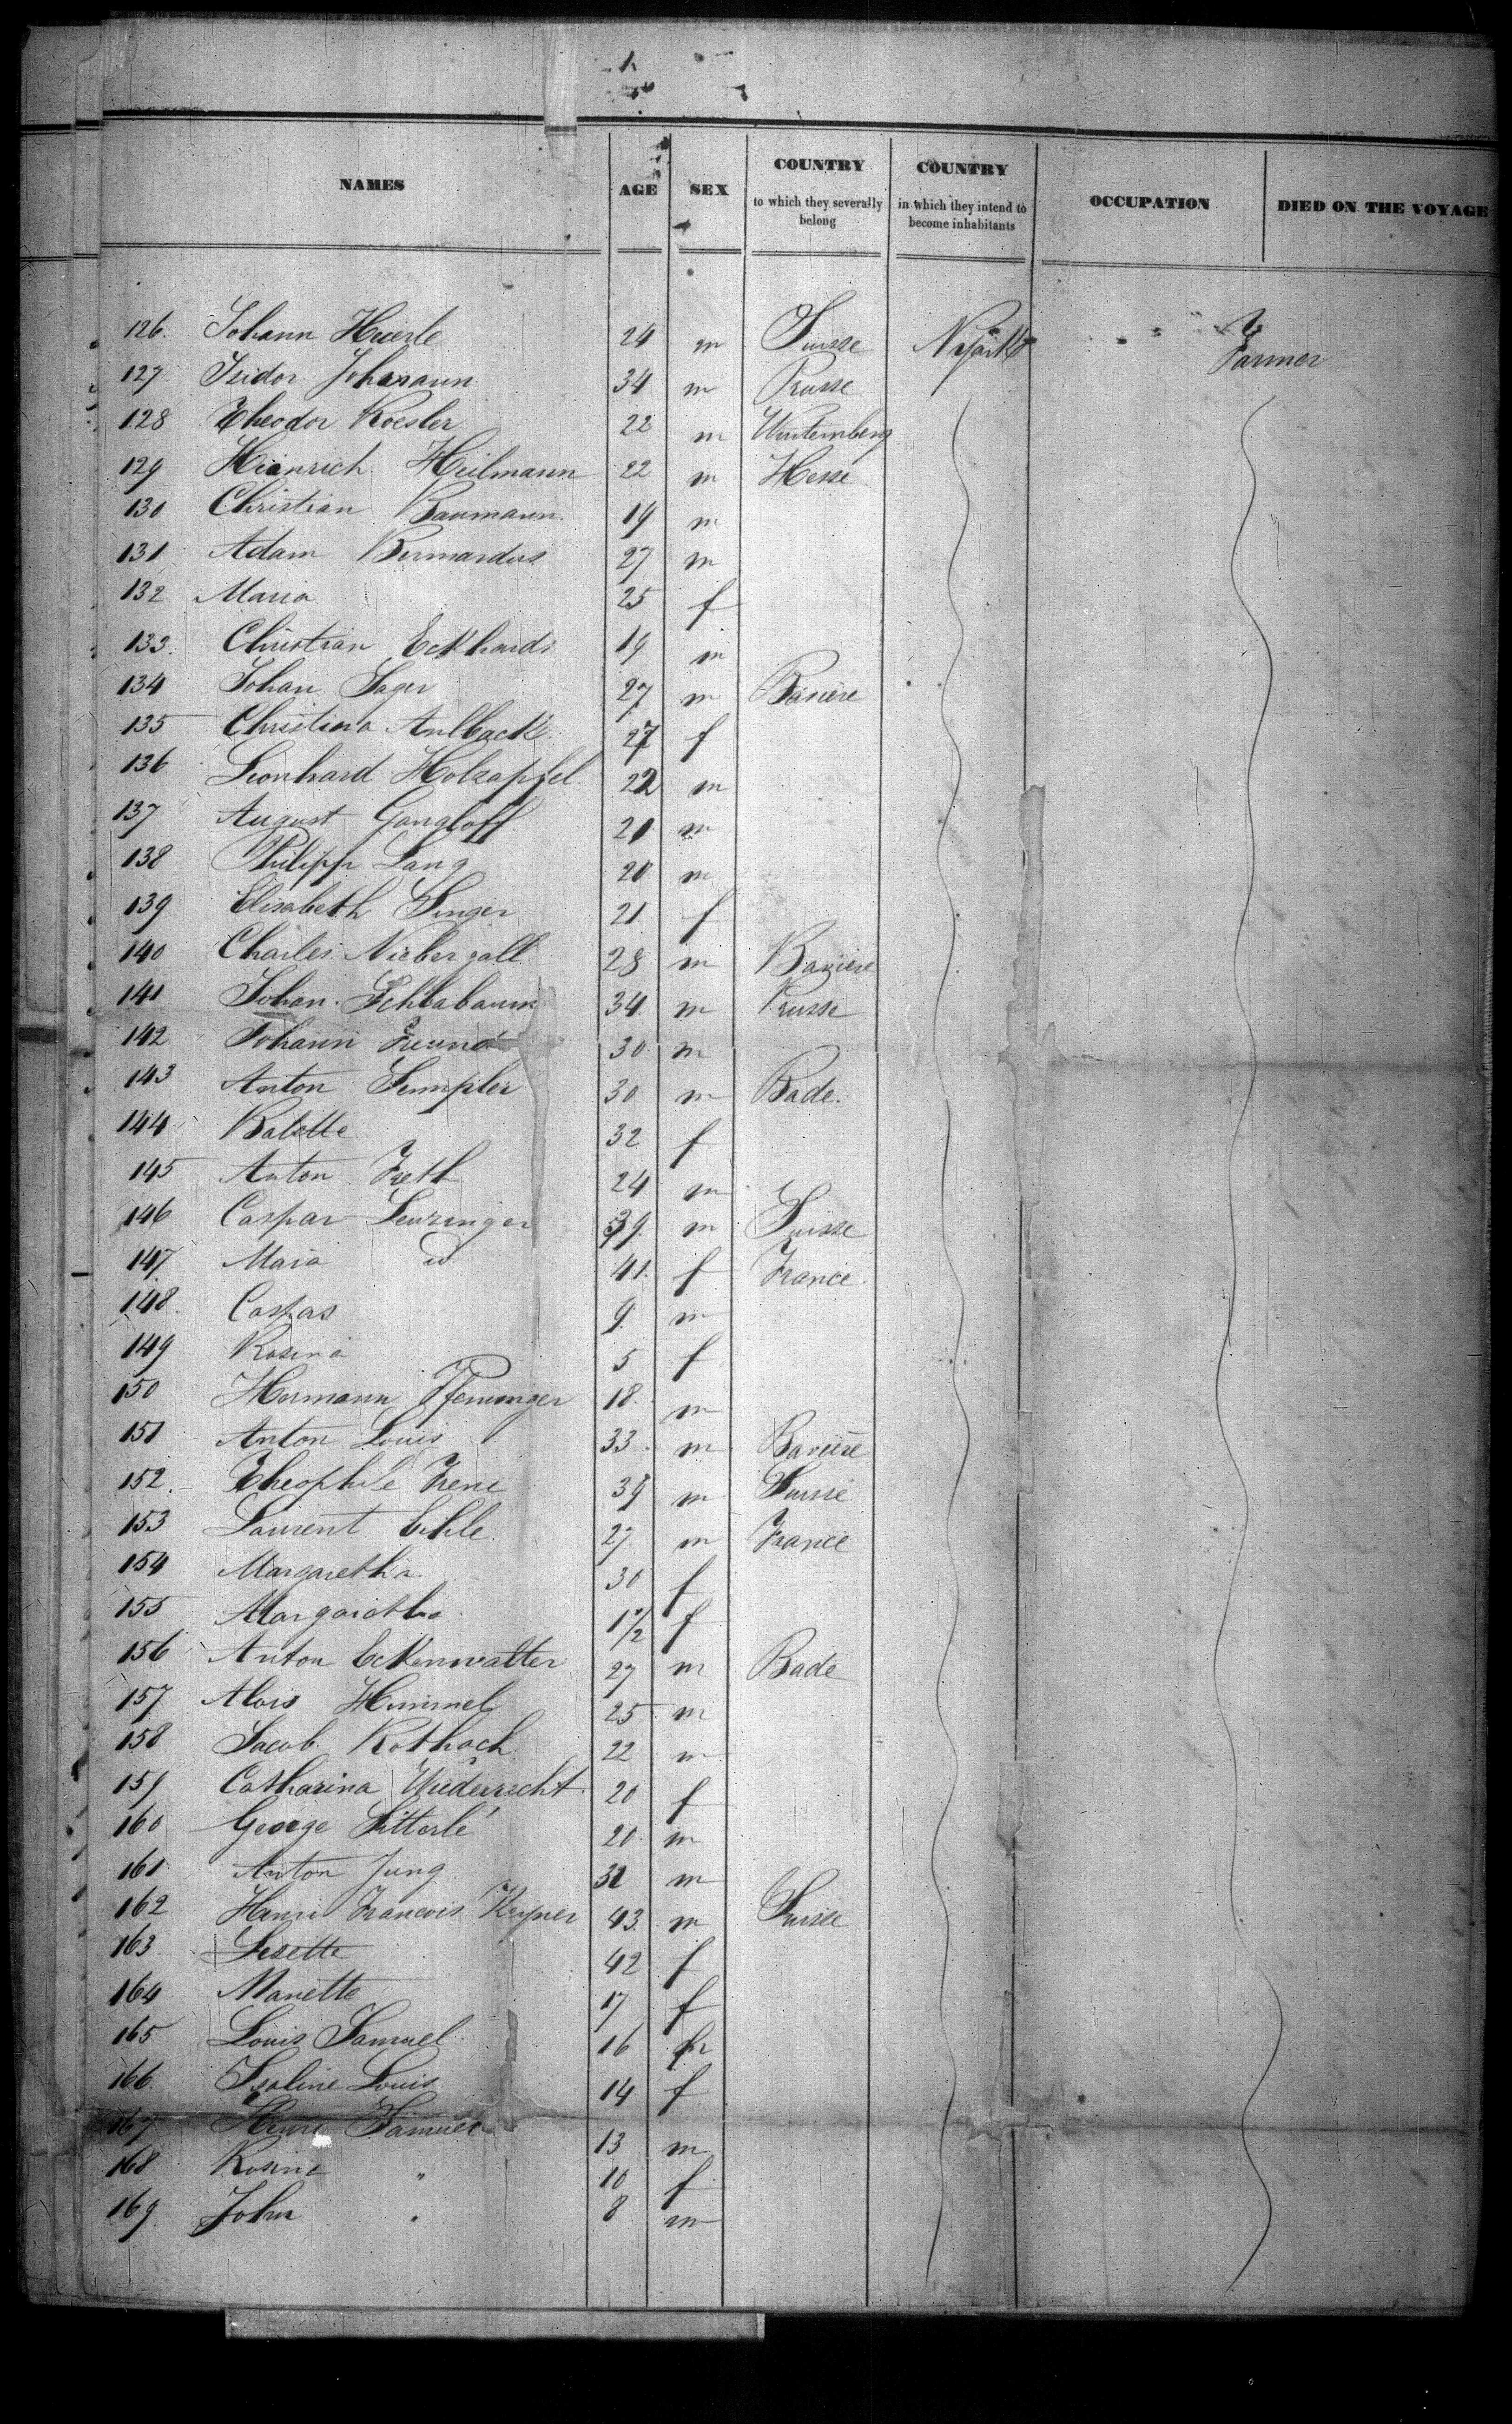 NAMES AGE SEX COUNTRY to which they severally belong COUNTRY in which they intend to become inhabitants OCCUPATION DIED ON THE VOYAGE
126. Johann Huerle 24 m Suisse Farmer
127 Isidor Johmann 34 m Prusse
128 Theodor Koesler 22 m Wurtemberg
129 Heinrich Heilmann 22 m Hesse
130 Christian Baumann 19 m
131 Adam Bernardus 27 m
132 Maria 25 f
133. Christian Eckhardt 19 m
134 Johan Sager 27 m Baviere
135 Christina Aulback 27 f
136 Leonhard Holzapfel 22 m
137 August Gangloff 21 m
138 Philipp Lang 20 m
139 Elisabeth Singer 21 f
140 Charles Niebergall 28 m Baviere
141 Johan Schlabaum 34 m Prusse
142 Johann Freund 30 m
143 Anton Sempler 30 m Bade.
144 Babette 32 f
145 Anton Freth 24 m
146 Caspar Leuzinger 39 m Suisse
147 Maria id 41 f France
148. Caspar 9 m
149 Rosina 5 f
150 Hermann Pfenninger 18 m
151 Anton Louis 33 m Baviere
152. Theophile Frene 39 m Suisse
153 Laurent Eihle 27 m France
154 Margaretha 30 f
155 Margaretha 1 1/2 f
156 Anton Eckenwalter 27 m Bade
157 Alois Himmel 25 m
158 Jacob Rothach 22 m
159 Catharina Wiederrecht 20 f
160 George Sitterlé 20 m
161 Anton Jung 31 m
162 Henri Francois 43 m Suisse
163 Lisette 42 f
164 Manette 17 f
165 Louis Samuel 16 m
166 Louis 14 f
167 Henri Samuel 13 m
168 Rosine " 10 f
169 John " 8 m